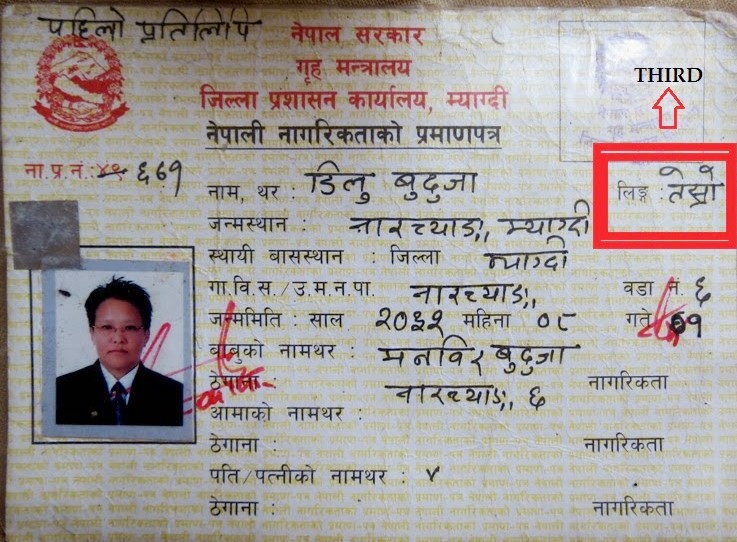 पहिलो प्रतिलिपि
नेपाल सरकार
गृह मन्त्रालय
जिल्ला प्रशासन कार्यालय, म्याग्दी
नेपाली नागरिकताको प्रमाणपत्र
THIRD
ना.प्र.नं.: ६७१
नाम, थर : डिलु बुदुजा
लिङ्ग : तेस्रो
जन्मस्थान : नारच्याङ, म्याग्दी
स्थायी बासस्थान : जिल्ला म्याग्दी
गा.वि.स./उ.म.न.पा. नारच्याङ, वडा नं. ६
जन्ममिति : साल २०३२ महिना ०८ गते ०१
बाबुको नामथर : मनविर बुदुजा
ठेगाना: नारच्याङ, ६ नागरिकता
आमाको नामथर :
ठेगाना : नागरिकता
पति/पत्नीको नामथर : ×
ठेगाना : नागरिकता